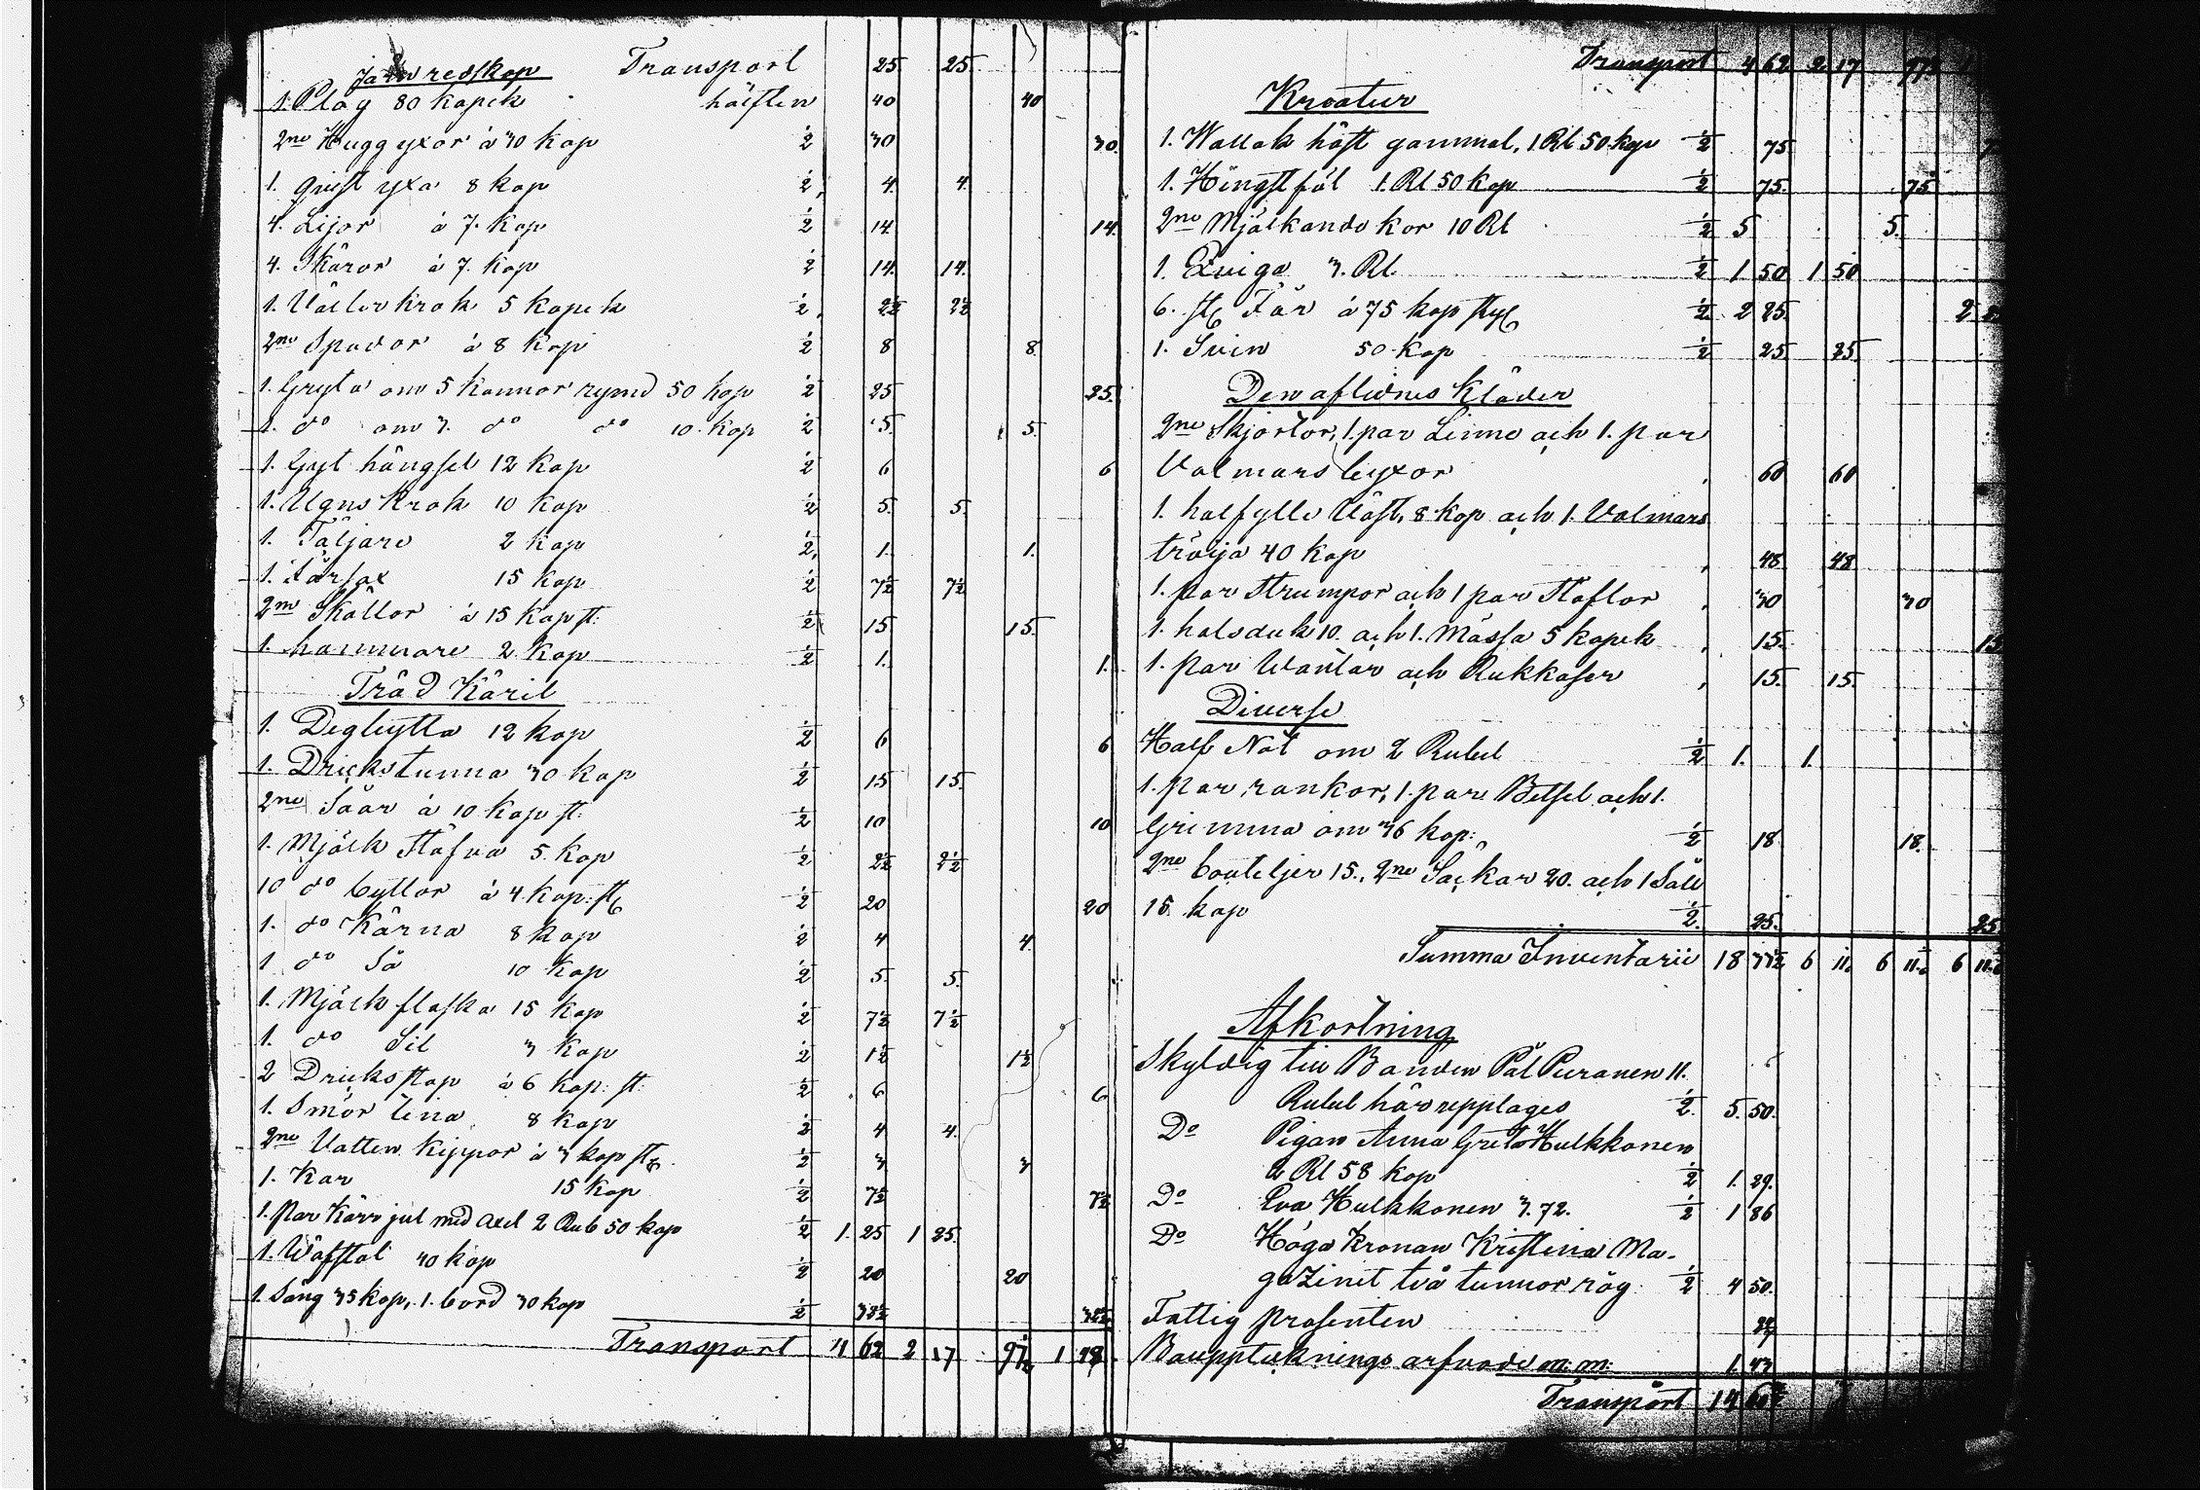 Järnredskap Transport 25 25
1. Plog 80 kopek hälften 40 40
2ne Huggyxor à 30 kop 1/2 30 30.
1. qvist yxa 8 kop 1/2 4. 4.
4. Lijor à 7. kop 1/2 14. 14.
4. Skäror à 7. kop 1/2 14. 14.
1. Väller krok 5 kopek 1/2 2 1/2 2 1/2
2ne Spador à 8 kop 1/2 8 8.
1. Gryta om 5 kannor rymd 50 kop 1/2 25 25.
1. do om 3. do do 10. kop 1/2 5. 5.
1. Gryt hängsel 12 kop 1/2 6 6
1. Ugns krok 10 kop 1/2 5. 5.
1. Täljare 2 kop 1/2 1. 1.
1. Fårsax 15 kop 1/2 7 1/2 7 1/2
2ne Skällor à 15 kop st: 1/2 15 15.
1. hammare 2 kop 1/2 1. 1.
Träd Käril
1. Degbytta 12 kop 1/2 6 6
1. Drickstunna 30 kop 1/2 15 15.
2ne Såar à 10 kop st: 1/2 10 10
1. Mjölk Stäfva 5. kop 1/2 2 1/2 2 1/2
10 do byttor à 4 kop: st 1/2 20 20
1. do Kärna 8 kop 1/2 4 4.
1 do Så 10 kop 1/2 5. 5.
1. Mjölk flaska 15 kop 1/2 7 1/2 7 1/2
1. do Sil 3 kop 1/2 1 1/2 1 1/2
2 Dricksstop à 6 kop: st: 1/2 6 6
1. Smör tina 8 kop 1/2 4 4.
2ne Vatten kippor à 3 kop st 1/2 3 3
1. Kar 15 kop 1/2 7 1/2 7 1/2
1. par Kärr jul med axel 2 Rub 50 kop 1/2 1. 25 1 25.
1. Wäfstol 40 kop 1/2 20 20
1. Säng 35 kop, 1. bord 30 kop 1/2 32 1/2 32 1/2
Transport 4 62 2 17 97 1/2 1
Transport 4 62 2 17
Kreatur
1. Wallak häst gammal, 1 Rl 50 kop 1/2 75
1. Hingstföl 1. Rl 50 kop 1/2 75. 75
2ne Mjölkande kor 10 Rl 1/2 5 5.
1. Qviga 3. Rl. 1/2 1 50 1 50
6. st Får à 75 kop styc 1/2 2 25. 2
1. Svin 50 kop 1/2 25 25.
Den aflidnes Kläder
2ne Skjortor, 1. par Linne och 1. par
Valmars byxor 60 60
1. halfylle Väst, 8 kop och 1. Valmars
tröija 40 kop 48 48
1. par Strumpor och 1 par Stöflor 30 30
1. halsduk 10. och 1. Mössa 5 kopek 15. 15
1. par Wantar och Rukkaser 15. 15.
Diverse
Half Not om 2 Rubel 1/2 1. 1.
1. par rankor, 1. par Betsel och 1.
Grimma om 36 kop: 1/2 18 18.
2ne bouteljer 15., 2ne Säckar 20. och 1 Såll
15 kop 1/2 25. 25
Summa Inventarii 18 6 11 6 11 6 11
Afkortning
Skyldig till Bonden Pål Puranen 11.
Rubel här upptages 1/2 5. 50.
Do Pigan Anna Greta Hulkkonen
2 Rl 58 kop 1/2 1. 29.
Do Eva Hulkkonen 3. 72. 1/2 1 86
Do Höga Kronan Kristina Ma-
gazinet två tunnor råg 1/2 4 50.
Fattig prosenten
Bouppteknings arfvode m: m: 1. 43
Transport 14